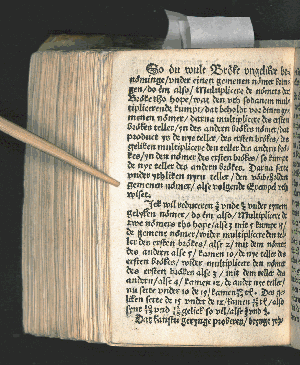 So du wult Bröke vngeliker be-
nöminge / vnder einen gemenen nömer brin-
gen / do em also / Multiplicere de nömers der
Bröke tho hope / wat den vth sodanem mul-
tiplicerende kumpt / dat beholt vor dinen ge-
menen nömer / darna multiplicere des ersten
brökes teller / yn des andern brökes nömer / dat
product ys de nye teller / des ersten brökes / des
geliken multiplicere den teller des andern brö-
kes / yn den nömer des ersten brökes / so kumpt
de nye teller des andern brökes. Darna sette
vnder ythliken nyen teller / den
gemenen nömer / alse volgende Exempel vth
wiset.
Ick wil reduceren ⅔ vnde ⅘ vnder einem
geliken nömer / do em also / Multiplicere de
twe nömers tho hope / alse 3 mit 5 kumpt 15
de gemene nömer / wider multiplicere den tel-
ler des ersten brökes / alse 2 / mit dem nömer
des andern alse 5 / kamen 10 / de nye teller des
ersten brökes / wider multiplicere den nömer
des ersten brökes alse 3 / mit dem teller des
andern / alse 4 / kamen 12 / de ander nye teller /
nu sette vnder 10 de 15 / kamen 10/15 Des ge-
liken sette de 15 vnder de 12 / kamen 12/15
synt 10/15 vnd 12/15 gelick so vel / alse ⅔ vnd ⅘
Dat kanstu geringe proberen /